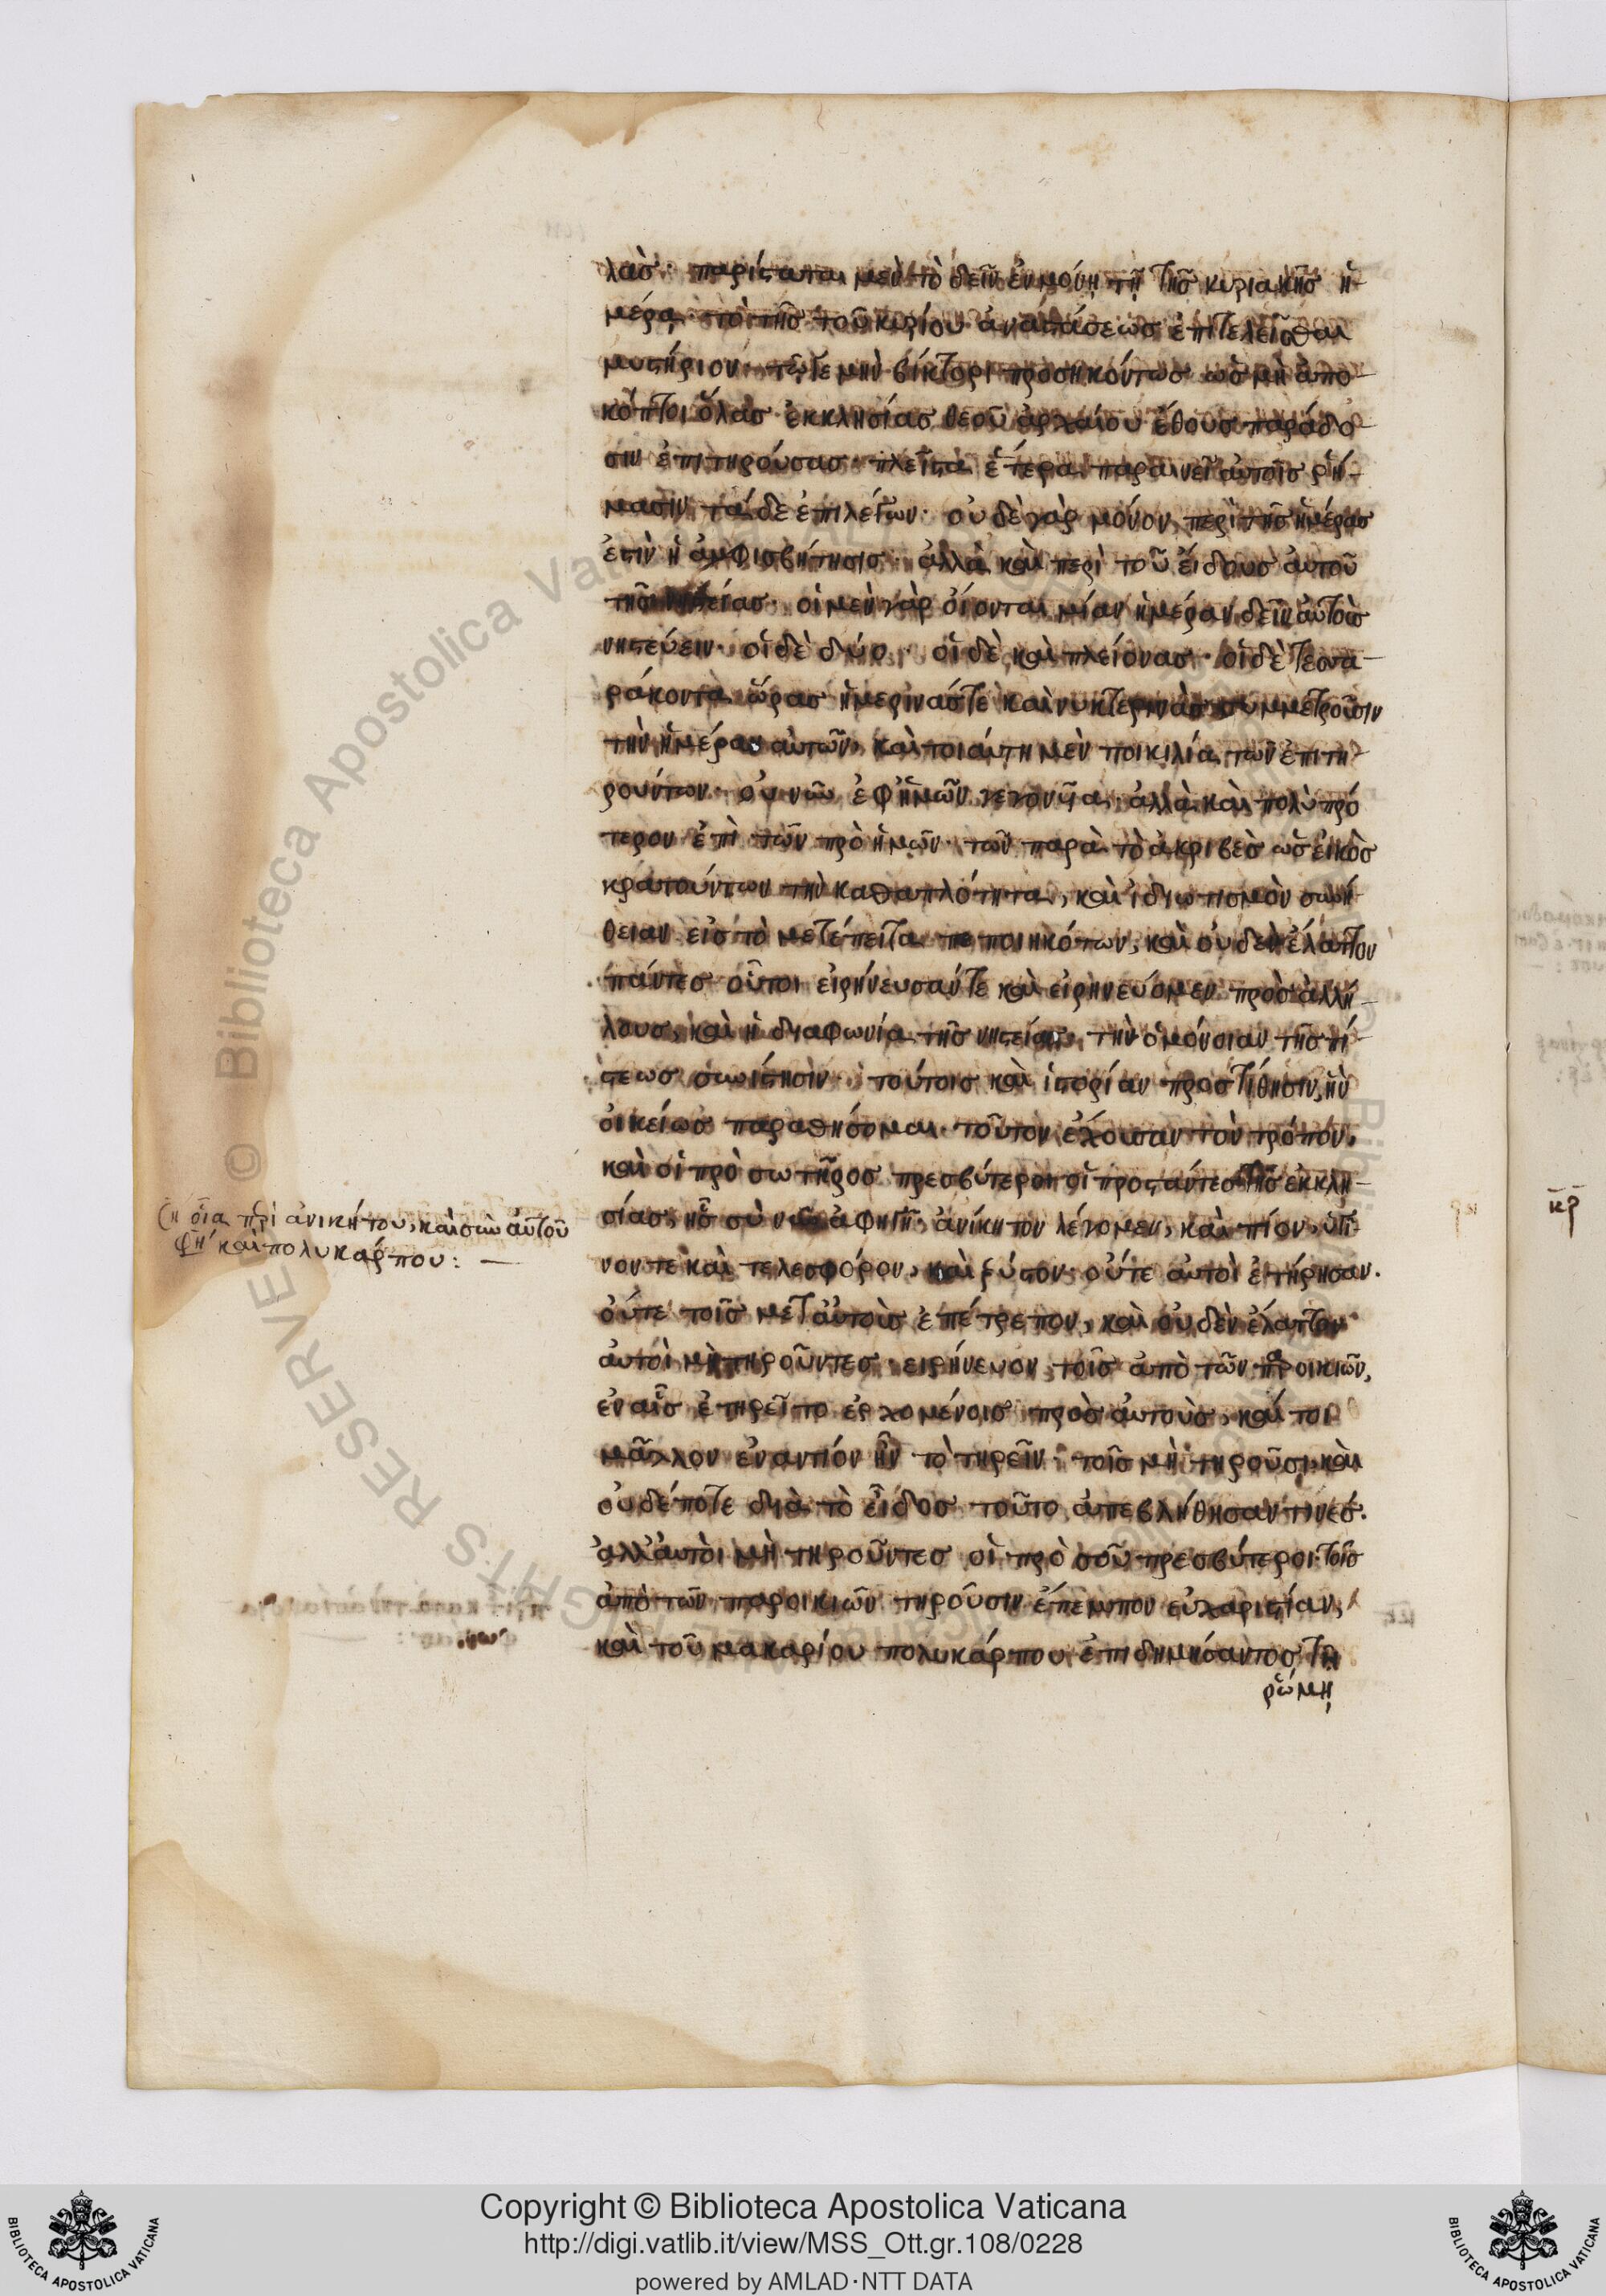 λὰσ· παρίσταται μὲν τὸ δεῖν ἐν μόνῃ τῇ τῆσ κυριακῆσ ἡ-
μέρᾳ τὸ τῆσ τοῦ κυρίου ἀναστάσεωσ ἐπιτελεῖσθαι
μυστήριον· τῷ γε μὴν βίκτορι προσηκόντωσ ὡσ μὴ ἀπο-
κόπτοι ὅλασ ἐκκλησίασ θεοῦ ἀρχαίου ἔθουσ παράδο
σιν ἐπιτηρούσασ· πλεῖστα ἕτερα παραινεῖ αὐτοῖσ ῥή-
μασιν τάδε ἐπιλέγων· οὐδὲ γὰρ μόνον περὶ τῆσ ἡμέρασ
ἐστὶν ἡ ἀμφισβήτησισ· ἀλλὰ καὶ περὶ τοῦ εἴδουσ αὐτοῦ
τῆσ νηστείασ· οἱ μὲν γὰρ οἴονται μίαν ἡμέραν δεῖν αὐτοὺσ
νηστεύειν· οἱ δὲ δύο· οἱ δὲ καὶ πλείονασ· οἱ δὲ τεσσα-
ράκοντα ὥρασ ἡμερινάσ τε καὶ νυκτερινὰσ συμμετροῦσιν
τὴν ἡμέραν αὐτῶν, καὶ τοιαύτη μὲν ποικιλία τῶν ἐπιτη-
ρούντων· οὐ νῦν ἐφ ἡμῶν γεγονυῖα· ἀλλὰ καὶ πολὺ πρό
τερον ἐπὶ τῶν πρὸ ἡμῶν· τῶν παρὰ τὸ ἀκριβὲσ ὡσ εἰκὸσ
κρατούντων τὴν καθαπλότητα, καὶ ἰδιωτισμὸν συνή-
θειαν εἰσ τὸ μετέπειτα πεποιηκότων, καὶ οὐδὲν ἔλαττον
πάντεσ οὗτοι εἰρήνευσάν τε καὶ εἰρηνεύομεν πρὸσ ἀλλή-
λουσ, καὶ ἡ διαφωνία τῆσ νηστείασ, τὴν ὁμόνοιαν τῆσ πί-
στεωσ συνίστησιν· τούτοισ καὶ ἱστορίαν προστίθησιν, ἣν
οἰκείωσ παραθήσομαι· τοῦτον ἔχουσαν τὸν τρόπον,
καὶ οἱ πρὸ σωτῆροσ πρεσβύτεροι οἱ προστάντεσ τῆσ ἐκκλη-
σίασ, ἧσ σὺ νῦν ἀφηγῇ, ἀνίκητον λέγομεν, καὶ πίον, ὑγῖ-
νον τε καὶ τελεσφόρον, καὶ ξύστον· οὔτε αὐτοὶ ἐτήρησαν.
οὔτε τοῖσ μετ αὐτοὺσ ἐπέτρεπον, καὶ οὐδὲν ἔλαττον
αὐτοὶ μὴ τηροῦντεσ· εἰρήνευον τοῖσ ἀπὸ τῶν παροικιῶν,
ἐν αἷσ ἐτηρεῖτο ἐρχομένοισ πρὸσ αὐτοὺσ, καί τοι
μᾶλλον ἐναντίον ἦν τὸ τηρεῖν· τοῖσ μὴ τηροῦσι, καὶ
οὐδέποτε διὰ τὸ εἶδοσ τοῦτο ἀπεβλήθησαν τινέσ.
ἀλλ αὐτοὶ μὴ τηροῦντεσ οἱ πρὸ σοῦ πρεσβύτεροι· τοῖσ
ἀπὸ τῶν παροικιῶν τηροῦσιν ἔπεμπον εὐχαριστίαν,
καὶ τοῦ μακαρίου πολυκάρπου ἐπιδημήσαντοσ τῇ
ῥώμῃ
οἷα περὶ ἀνικήτου, καὶ σὺν αὐτοῦ
φη καὶ πολυκάρπου: —
κρ
© Biblioteca Apostolica Vaticana
Copyright © Biblioteca Apostolica Vaticana
http://digi.vatlib.it/view/MSS_Ott.gr.108/0228
powered by AMLAD·NTT DATA
BIBLIOTECA APOSTOLICA VATICANA
BIBLIOTECA APOSTOLICA VATICANA